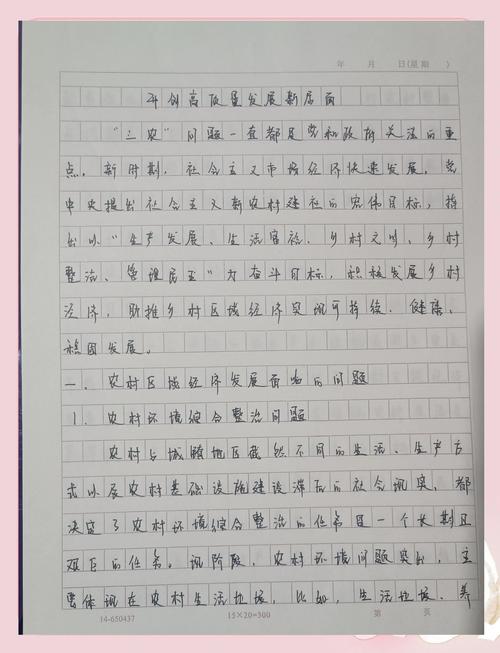 年 月 日(星期 )
开创高质量发展新局面
"三农"问题一直都是党和政府关注的重
点。新时期,社会主义市场经济快速发展,党
中央提出社会主义新农村建社的宏伟目标,指
出以"生产发展、生活富裕、乡村文明、乡村
整洁、管理民主"为奋斗目标,积极发展乡村
经济,助推乡村区域经济实现可持续、健康、
稳固发展。
一、农村区域经济发展面临的问题
1.农村环境综合整治问题
农村与城镇地区截然不同的生活、生产方
式以及农村基础设施建设滞后的社会现实,都
决定了农村环境综合整治的任务是一个长期且
艰巨的任务。现阶段,农村环境问题突出,主
要体现在农村生活垃圾,比如,生活垃圾、养
14-650437 15×20=300 第 页